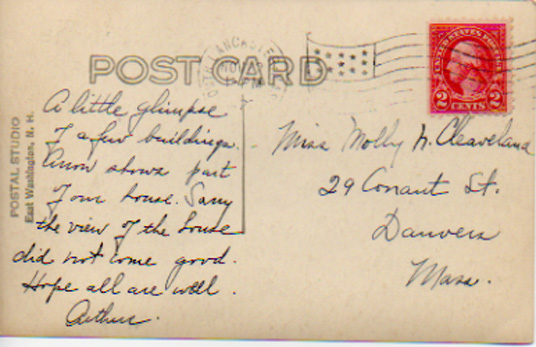 POST CARD
LANCASTER
UNITED STATES POSTAGE
2 CENTS 2
POSTAL STUDIO
East Washington, N. H.
A little glimpse
of a few buildings.
Arrow shows part
of our house. Sorry
the view of the house
did not come good.
Hope all are well.
Arthur.
Miss Molly N. Cleaveland
29 Conant St.
Danvers
Mass.